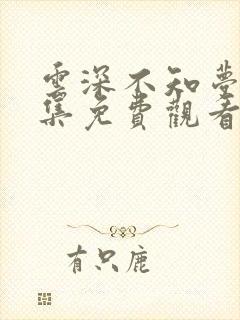 雲深不知夢
集免費觀看
有只鹿